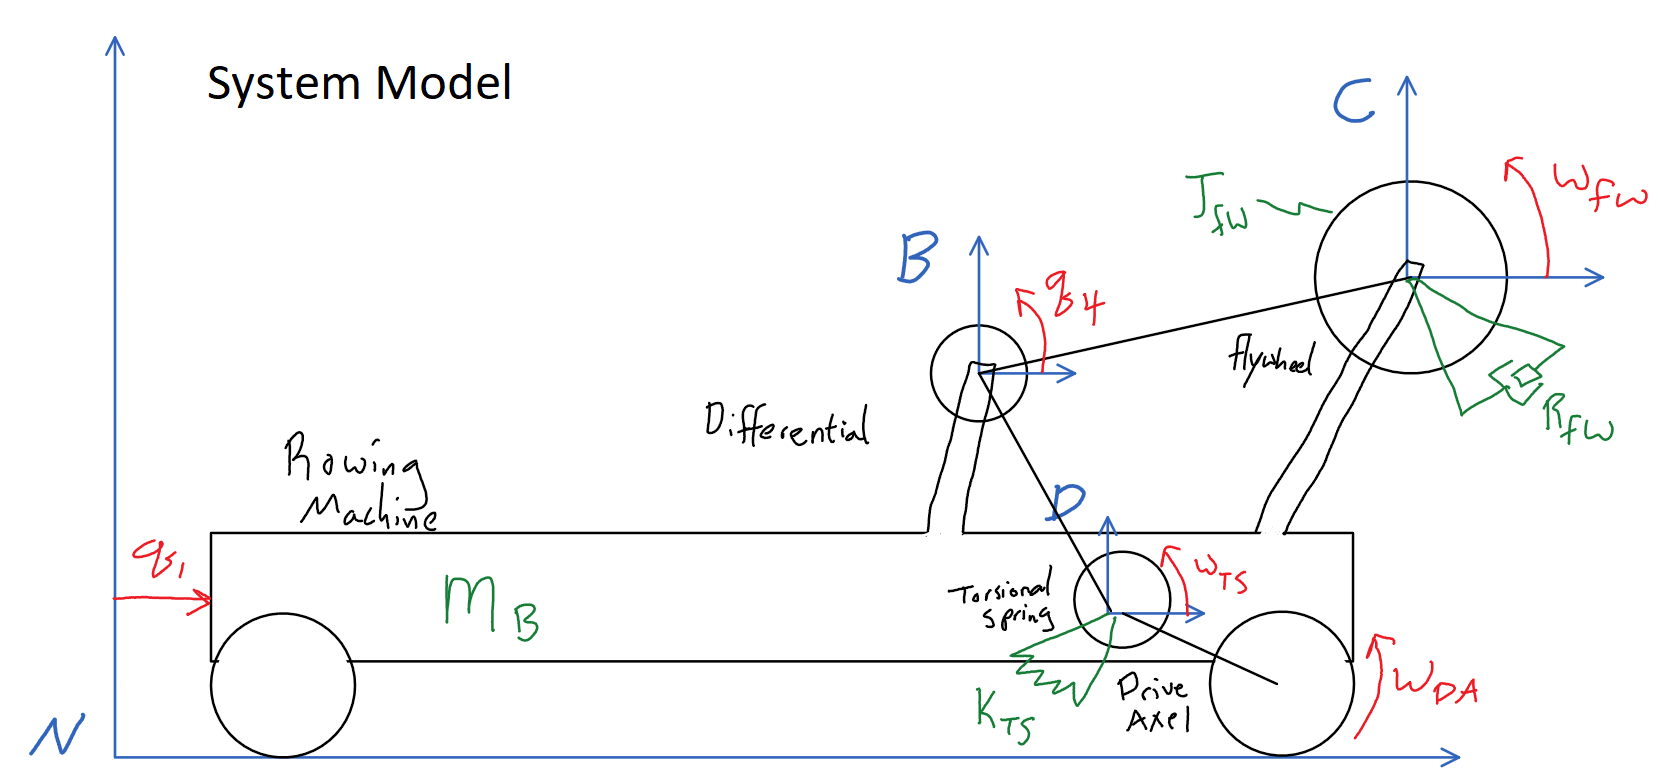 System Model
C
J_fw
ω_fw
B
q_4
flywheel
R_fw
Differential
Rowing
Machine
D
q_1
M_B
Torsional
Spring
ω_TS
K_TS
Drive
Axel
ω_DA
N